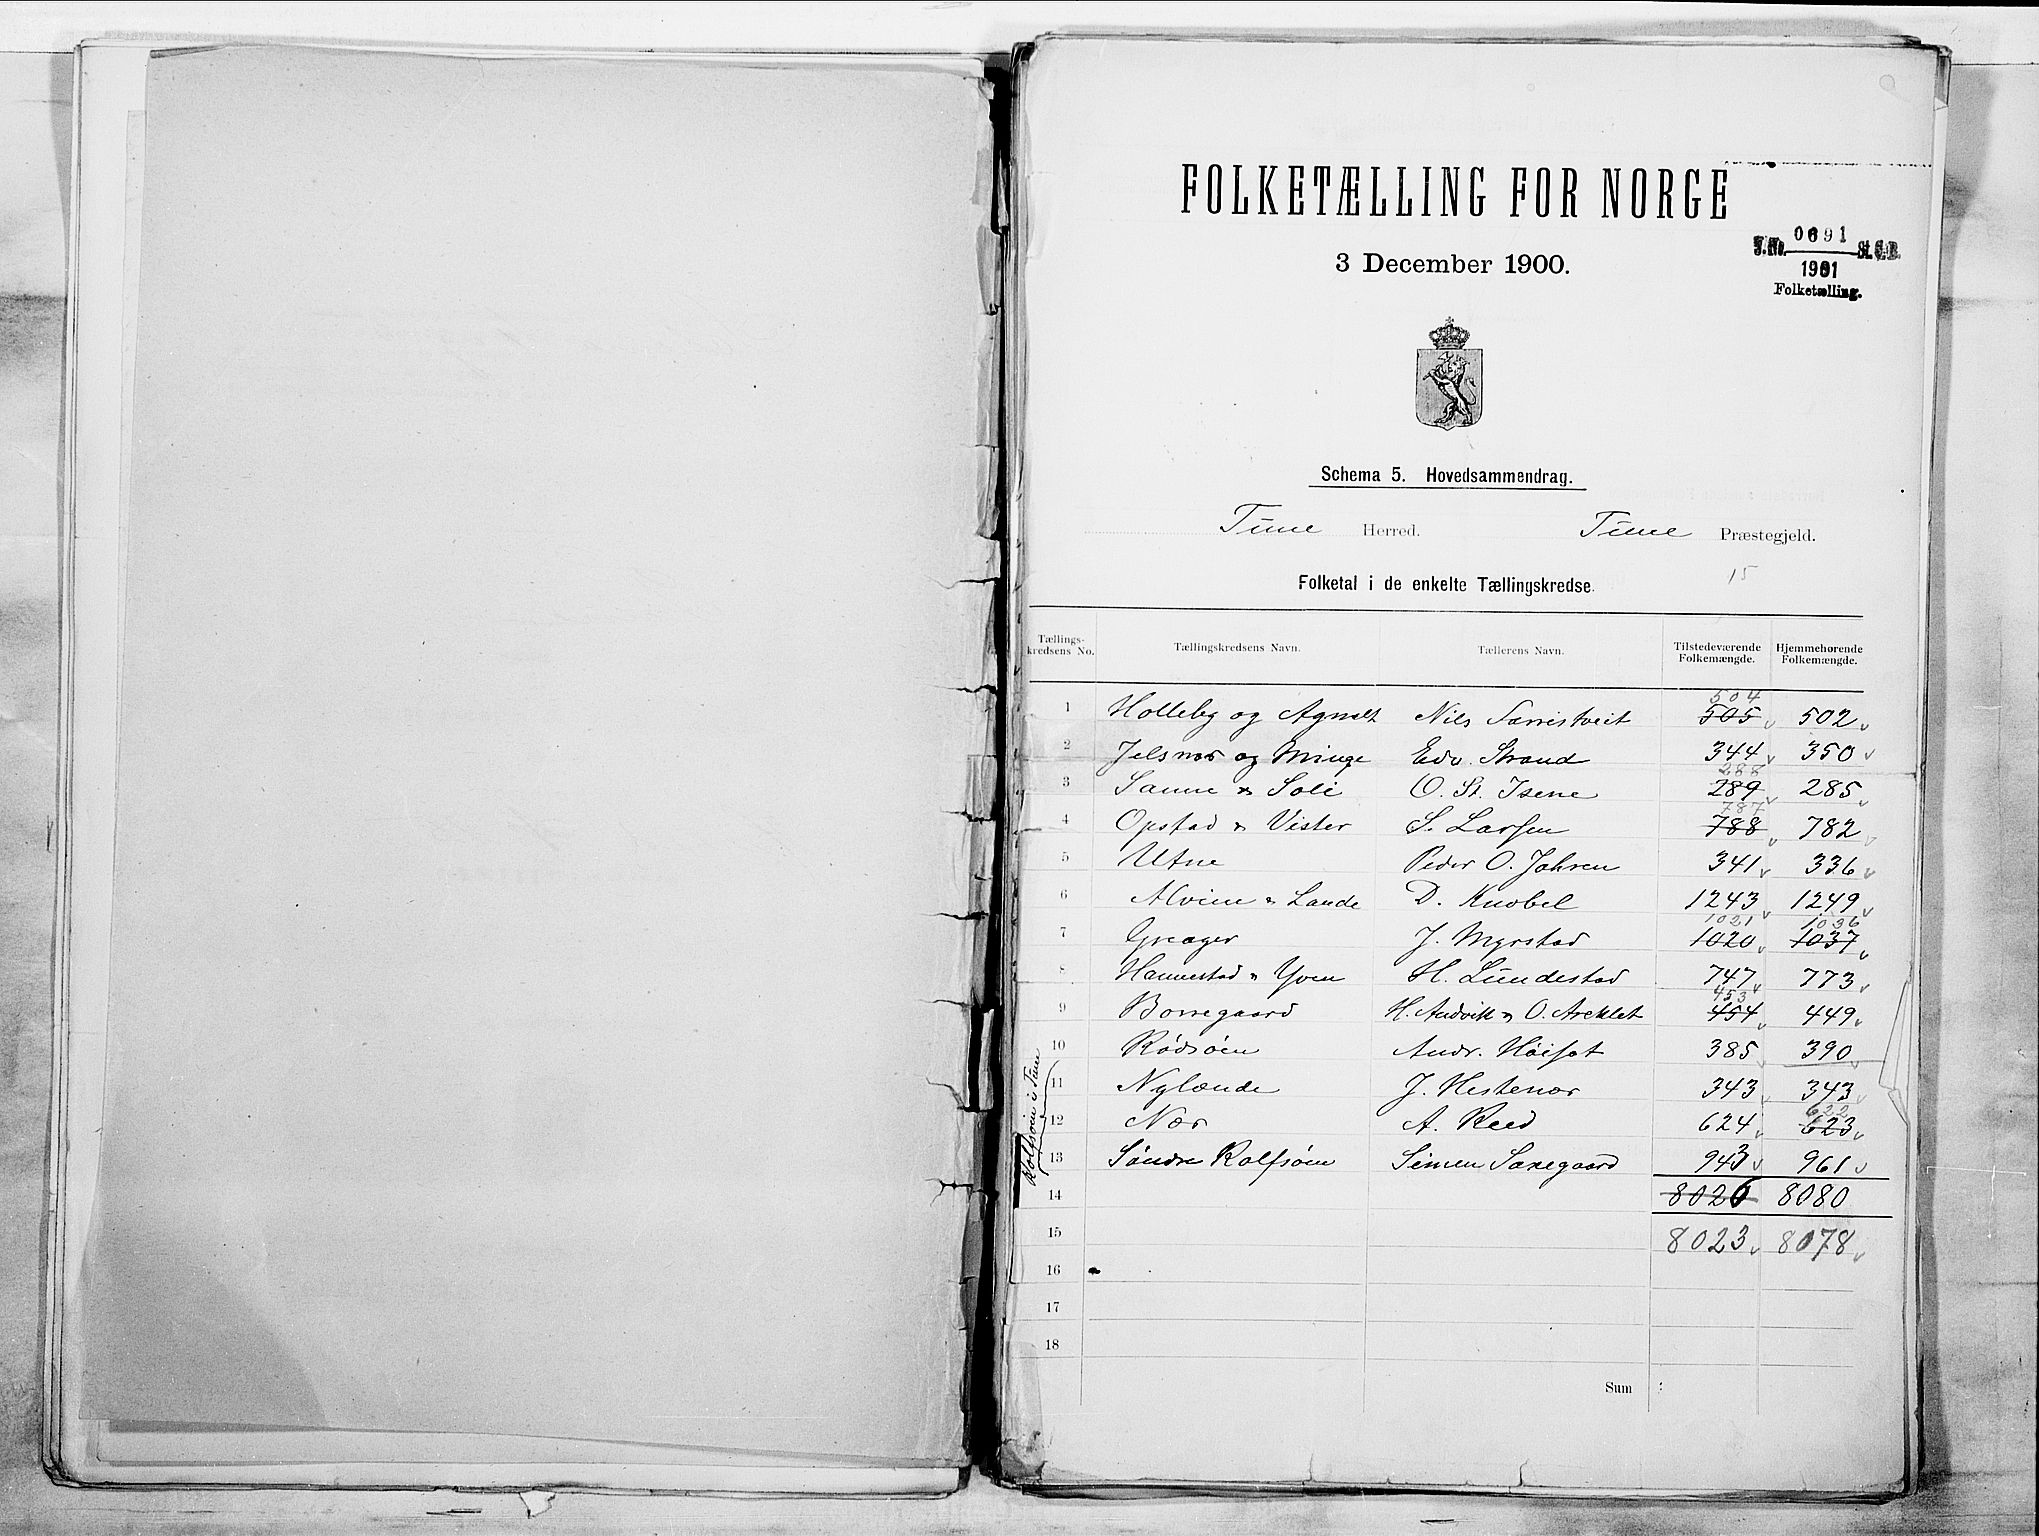 FOLKETÆLLING FOR NORGE
3 December 1900.
J.No. 0691 St.C.B.
1901
Folketælling.
Schema 5. Hovedsammendrag.
Tune Herred. Tune Præstegjeld.
Folketal i de enkelte Tællingskredse. 15
Tællings-kredsens No. Tællingskredsens Navn. Tællerens Navn. Tilstedeværende Folkemængde. Hjemmehørende Folkemængde.
504
1 Holleby og Agnalt Nils 505 502
2 Jelsnes og Minge Edv. Strand 344 350
288
3 Sanne & Soli O. St. Isene 289 285
787
4 Opstad & Vister S. Larsen 788 782
5 Utne Peder O. Jahren 341 336
6 Alvim & Lande D. Knobel 1243 1249
1021 1036
7 Greager J. Myrstad 1020 1037
8 Hannestad & Yven H. Lundestad 747 773
453
9 Borregaard H. Andvik & O. Areklet 454 449
10 Rödsöen Andr. 385 390
Rolfsöen i Tune
11 Nylænde J. Hestenær 343 343
622
12 Nær A. Reed 624 623
13 Söndre Rolfsöen Simen Saxegaard 943 961
14 8026 8080
15 8023 8078
16
17
18
Sum